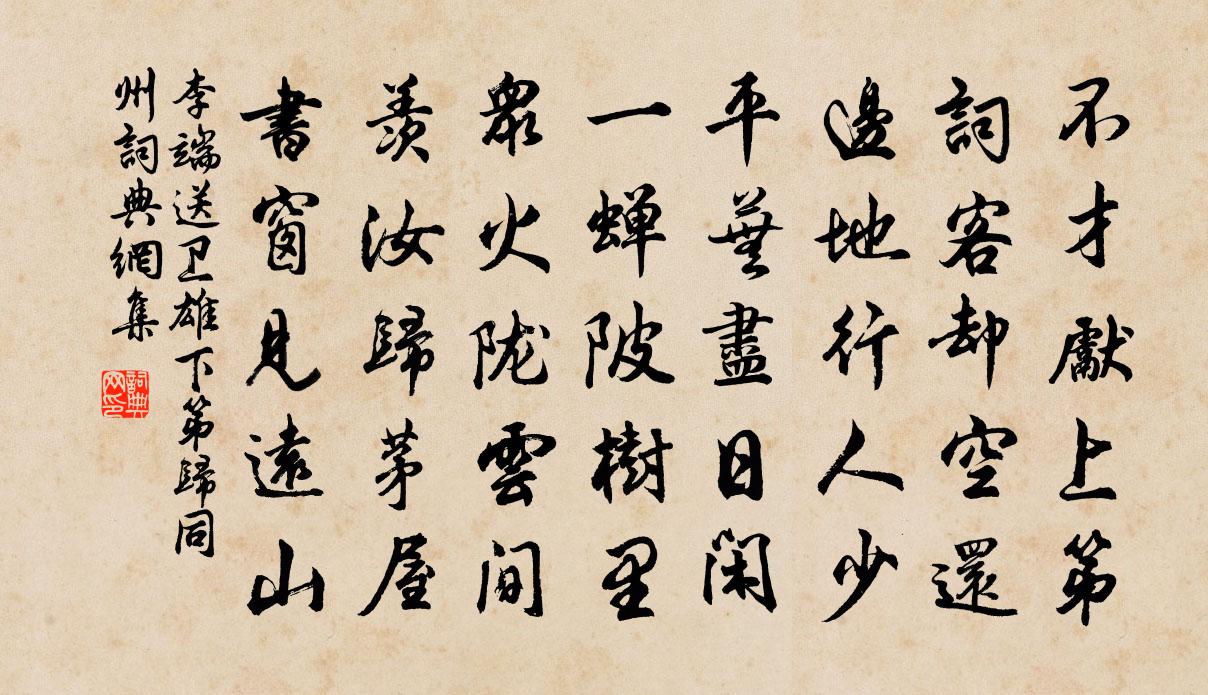 不才獻上第
詞客却空還
邊地行人少
平蕪盡日閑
一蝉陂樹里
衆火陇雲间
羨汝歸茅屋
書窗見遠山
李端送卫雄下第歸同
州詞典網集
詞典
网印